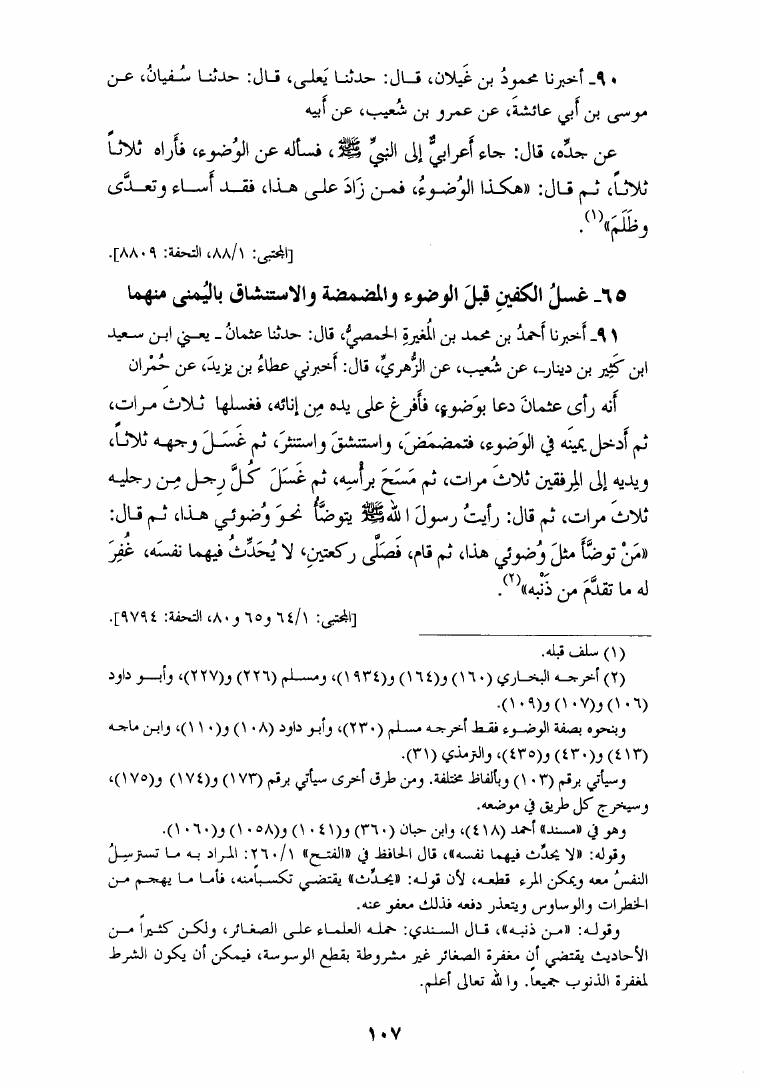 ٩٠ـ أخبرنا محمودُ بن غَيلان، قـال: حدثنـا يَعلـى، قـال: حدثنـا سُـفيانُ، عـن
موسى بن أَبي عائشةَ، عن عمرو بن شُعيب، عن أَبيه
عن جدِّه، قال: جاء أَعرابيٌّ إلى النبيِّ ﷺ، فسأله عن الوُضوء، فأَراه ثلاثـاً
ثلاثـاً، ثـم قـال: «هكـذا الوُضـوءُ، فمـن زَادَ علـى هـذا، فقـد أَسـاء وتعـدَّى
وظَلَمَ»(١).
[المجتبى: ٨٨/١، التحفة: ٨٨٠٩].
٦٥ـ غسلُ الكفينِ قبلَ الوضوء والمضمضة والاستنشاق باليُمنى منهما
٩١ـ أخبرنا أَحمدُ بن محمد بن المُغيرةِ الحمصيُّ، قال: حدثنا عثمانُ ـ يعـني ابـن سـعيد
ابن كَثِير بن دينارـ، عن شُعيب، عن الزُّهريِّ، قال: أَخبرني عطاءُ بن يزيدَ، عن حُمْران
أنه رأَى عثمانَ دعا بوَضوءٍ، فأَفرغ على يده مِن إنائه، فغسلها ثـلاثَ مـرات،
ثم أَدخل يمينَه في الوَضوء، فتمضمَضَ، واستنشقَ واستنثرَ، ثم غَسَـلَ وجهـه ثلاثـاً،
ويديه إلى المِرفقين ثلاثَ مرات، ثم مَسَحَ برأْسِه، ثم غَسَلَ كُـلَّ رِجـل مِـن رجليـه
ثلاثَ مرات، ثم قال: رأيتُ رسولَ الله ﷺ يتوضَّأُ نحـوَ وُضوئـي هـذا، ثـم قـال:
«مَنْ توضَّأَ مثلَ وُضوئي هذا، ثم قام، فَصَلَّى ركعتينِ، لا يُحَدِّثُ فيهما نفسَه، غُفِرَ
له ما تقدَّمَ من ذَنْبِه»(٢).
[المجتبى: ٦٤/١ و٦٥ و٨٠، التحفة: ٩٧٩٤].
(١) سلف قبله.
(٢) أخرجـه البخـاري (١٦٠) و(١٦٤) و(١٩٣٤)، ومسـلم (٢٢٦) و(٢٢٧)، وأبـو داود
(١٠٦) و(١٠٧) و(١٠٩).
وبنحوه بصفة الوضـوء فقـط أخرجـه مسلم (٢٣٠)، وأبـو داود (١٠٨) و(١١٠)، وابـن ماجـه
(٤١٣) و(٤٣٠) و(٤٣٥)، والترمذي (٣١).
وسيأتي برقم (١٠٣) وبألفاظ مختلفة. ومن طرق أخرى سيأتي برقم (١٧٣) و(١٧٤) و(١٧٥)،
وسيخرج كل طريق في موضعه.
وهو في «مسند» أحمد (٤١٨)، وابن حبان (٣٦٠) و(١٠٤١) و(١٠٥٨) و(١٠٦٠).
وقوله: «لا يحدِّث فيهما نفسه»، قال الحافظ في «الفتـح» ٢٦٠/١: المـراد بـه مـا تسترسِلُ
النفسُ معه ويمكن المرء قطعـه، لأن قولـه: «يحـدِّث» يقتضـي تكسـباًمنه، فأمـا مـا يهجـم مـن
الخطرات والوساوس ويتعذر دفعه فذلك معفو عنه.
وقولـه: «مـن ذنبـه»، قـال السـندي: حملـه العلمـاء علـى الصغـائر، ولكـن كثـيراً مـن
الأحاديث يقتضي أن مغفرة الصغائر غير مشروطة بقطع الوسوسة، فيمكن أن يكون الشرط
لمغفرة الذنوب جميعاً. والله تعالى أعلم.
١٠٧